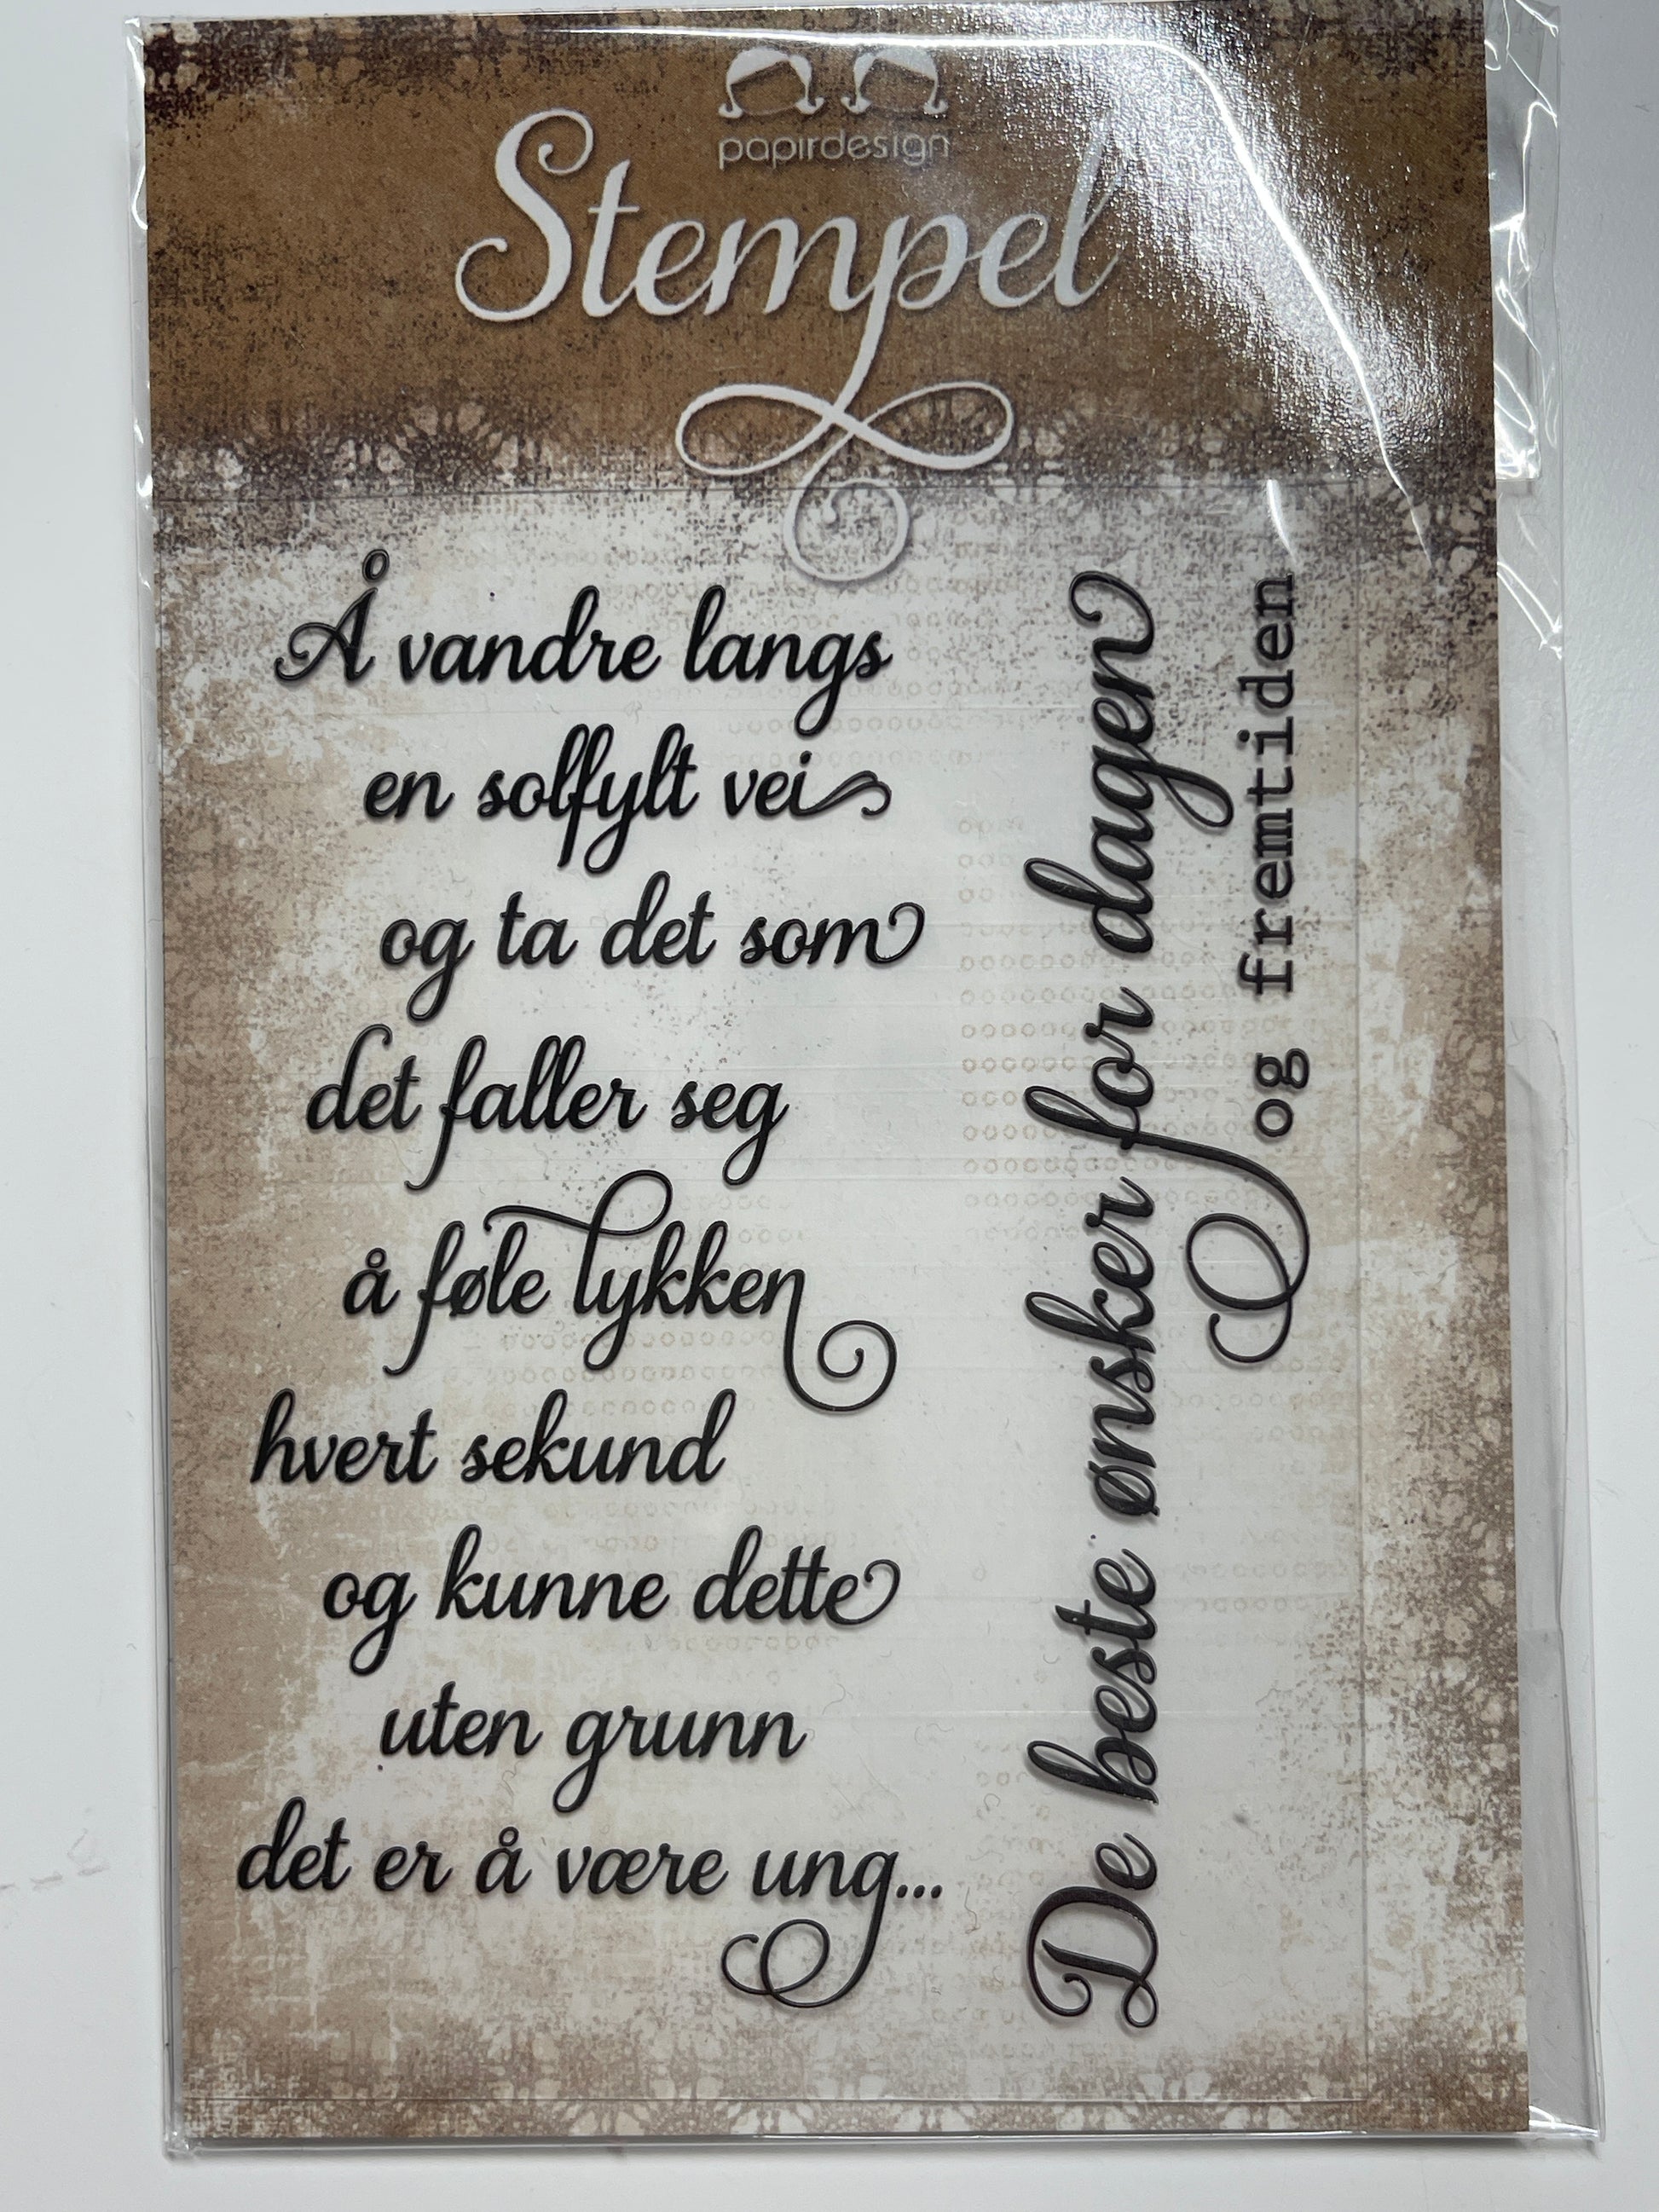 papirdesign
Stempel
Å vandre langs
en solfylt vei
og ta det som
det faller seg
å føle lykken
hvert sekund
og kunne dette
uten grunn
det er å være ung...
De beste ønsker for dagen
og fremtiden